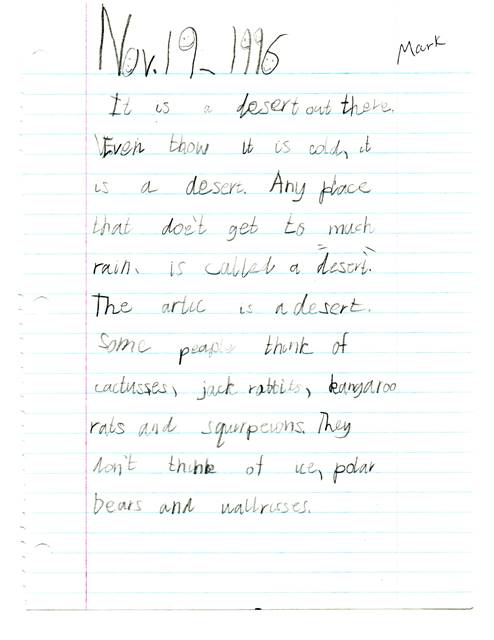 Nov. 19- 1996
Mark
It is a desert out there.
Even thow it is cold, it
is a desert. Any place
that doe't get to much
rain, is called a "desert".
The artic is a desert.
Some peaple think of
cactusses, jack rabbits, kangaroo
rats and squrpeuns. They
don't think of ice, polar
bears and wallrusses.